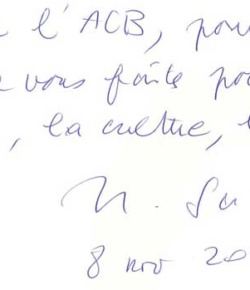 l'ACB, pour
vous faites pour
, la culture,
8 nov 20